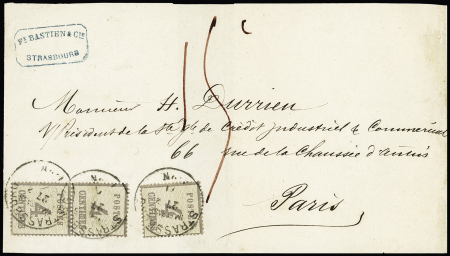 Fs BASTIEN & Cie
STRASBOURG
15
Monsieur H. Durrieu
V. Président de la Sté Gle de Crédit Industriel & Commercial
66 rue de la Chaussée d'Antin
Paris
POSTES 4 CENTIMES
POSTES 4 CENTIMES
POSTES 4 CENTIMES